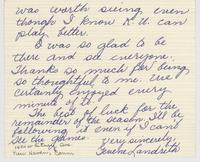 was worth seeing even
though I know R.U. can
play better.
I was so glad to be
there and see everyone.
Thanks so much for being
so thoughtful to me. We
certainly enjoyed every
minute of it.
The best of luck for the
remainder of the season. I'll be
following it even if I can't
see the games.
Very sincerely,
Landreth
New Haven, Conn.